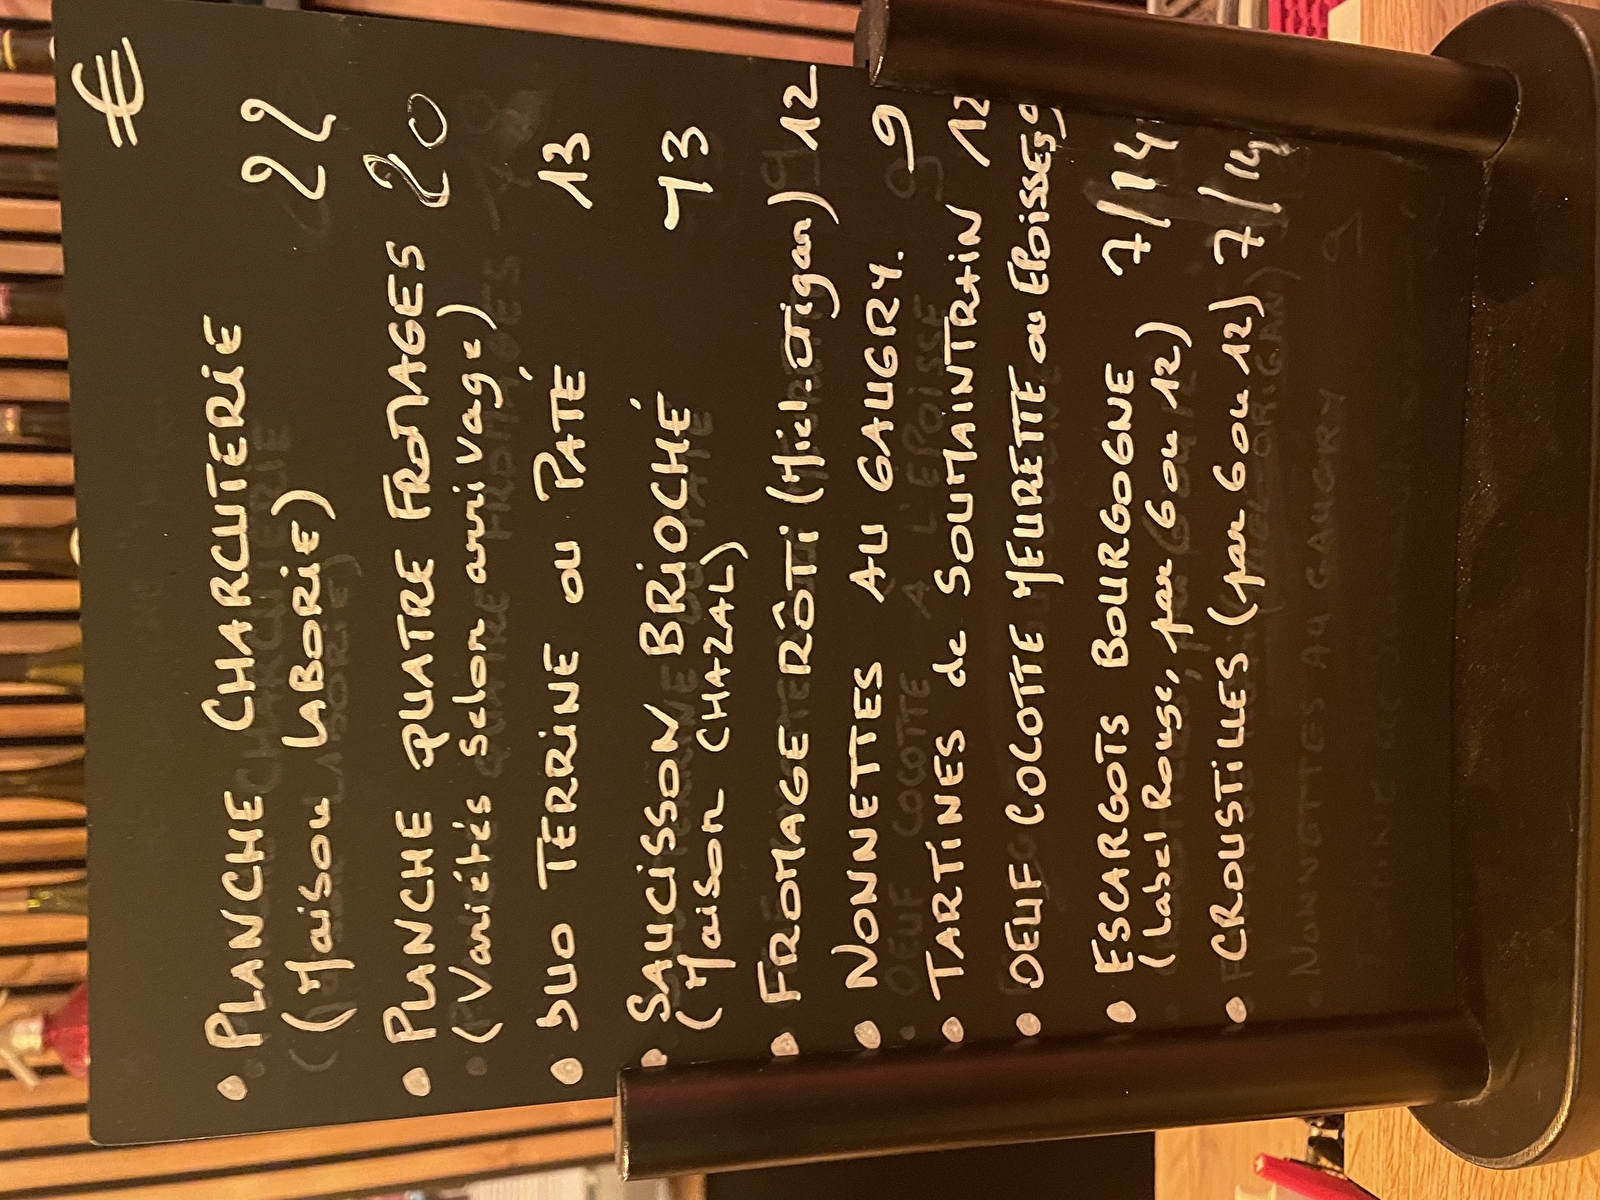 €
• PLANCHE CHARCUTERIE 22
(Maison LABORIE)
• PLANCHE QUATRE FROMAGES 20
(Variétés selon arrivage)
• DUO TERRINE ou PÂTÉ 13
• SAUCISSON BRIOCHÉ 13
(Maison CHAZAL)
• FROMAGE RÔTI (Miel-Origan) 12
• NONNETTES AU GAUGRY. 9
• TARTINES de SOUMAINTRAIN 12
• OEUF COCOTTE MEURETTE ou EPOISSES 9
• ESCARGOTS BOURGOGNE 7/14
(Label Rouge, par 6 ou 12)
• CROUSTILLES (par 6 ou 12) 7/14
NONNETTES AU GAUGRY 9